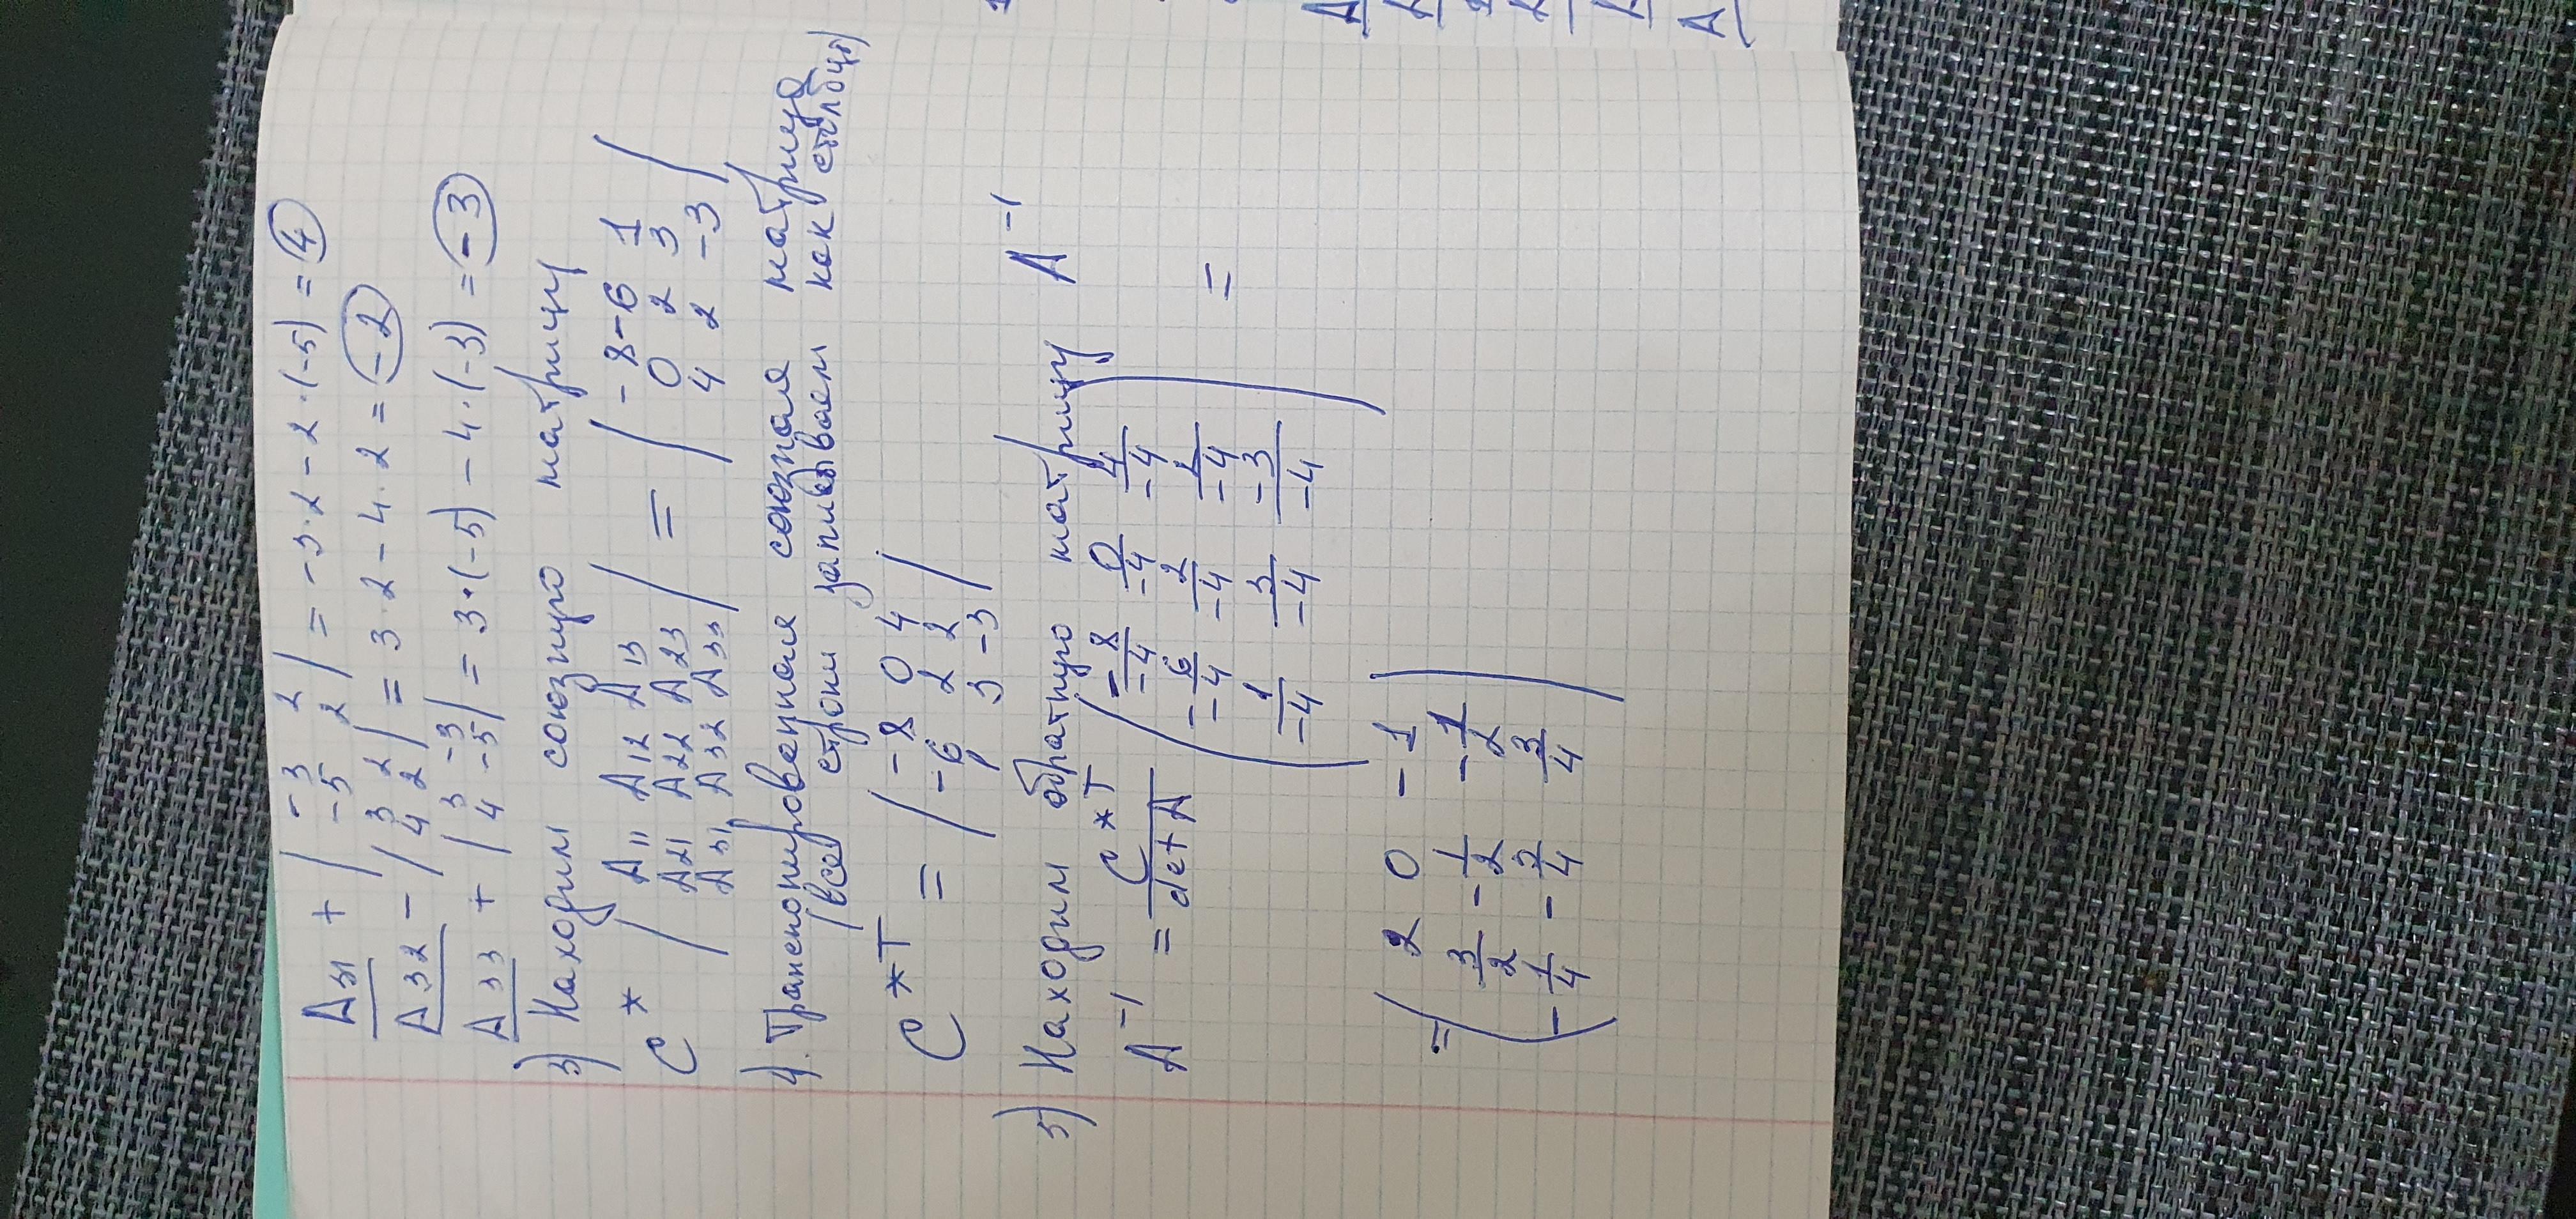 A31 + | -3 2
-5 2 | = -3·2 - 2·(-5) = 4
A32 - | 3 2
4 2 | = 3·2 - 4·2 = -2
A33 + | 3 -3
4 -5 | = 3·(-5) - 4·(-3) = -3
3) Находим союзную матрицу
C* | A11 A12 A13
A21 A22 A23
A31 A32 A33 | = | -8 -6 1
0 2 3
4 2 -3 |
4. Транспонированная союзная матрица
(все строки записываем как столбцы)
C*T = | -8 0 4
-6 2 2
1 3 -3 |
5) Находим обратную матрицу A⁻¹
A⁻¹ = C*T / det A ( -8/-4 0/-4 4/-4
-6/-4 2/-4 2/-4
1/-4 3/-4 -3/-4 ) =
= ( 2 0 -1
3/2 -1/2 -1/2
-1/4 -3/4 3/4 )